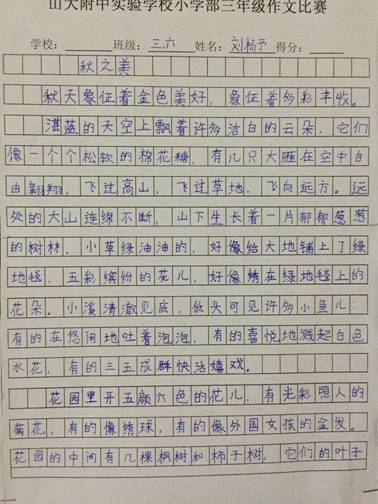 山大附中实验学校小学部三年级作文比赛
学校：班级：三.六 姓名：刘杨予 得分：
秋之美
秋天象征着金色美好，象征着多彩丰收。
湛蓝的天空上飘着许多洁白的云朵，它们
像一个个松软的棉花糖，有几只大雁在空中自
由翱翔，飞过高山，飞过草地，飞向远方。远
处的大山连绵不断，山下生长着一片郁郁葱葱
的树林，小草绿油油的，好像给大地铺上了绿
地毯，五彩缤纷的花儿，好像绣在绿地毯上的
花朵。小溪清澈见底，低头可见许多小鱼儿：
有的在悠闲地吐着泡泡，有的喜悦地溅起白色
水花，有的三五成群快活嬉戏。
花园里开五颜六色的花儿，有光彩照人的
菊花，有的像绣球，有的像外国女孩的金发。
花园的中间有几棵枫树和柿子树，它们的叶子